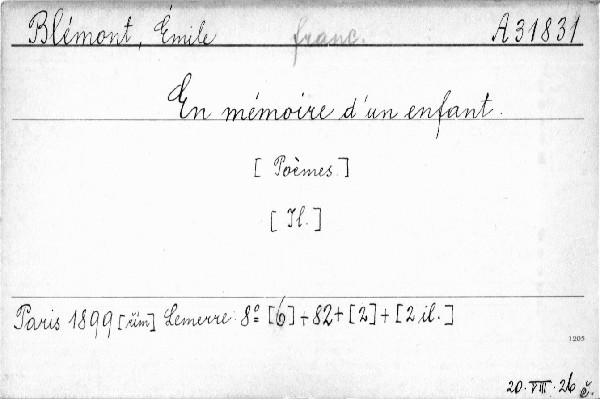 Blémont, Émile franc. A31831
En mémoire d'un enfant.
[Poèmes]
[Il.]
Paris 1899 [řím] Lemerre. 8° [6]+82+[2]+[2 il.]
1205
20. VIII. 26 č.